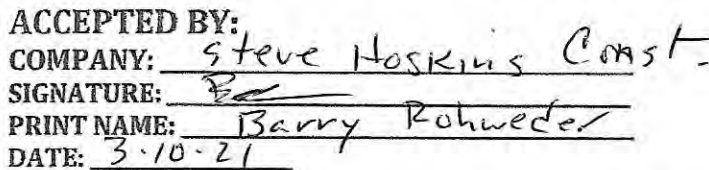 ACCEPTED BY:
COMPANY: Steve Hoskins Const.
SIGNATURE:
PRINT NAME: Barry Rohweder
DATE: 3-10-21